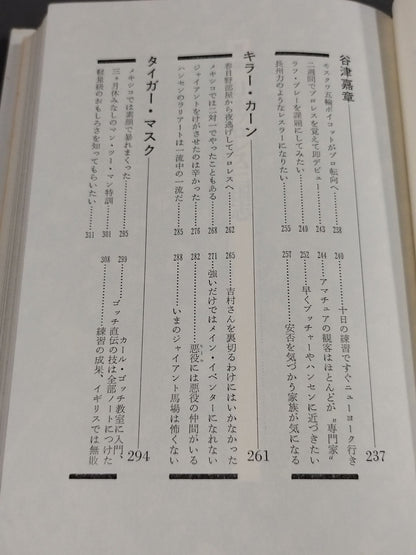 谷津嘉章 237
モスクワ五輪ボイコットがプロ転向へ……238
十日の練習ですぐニューヨーク行き……240
二週間でプロレスを覚えて即デビュー……243
アマチュアの観客はほとんどが〝専門家〟……244
ラフ・プレーを課題にしてみたい……249
早くブッチャーやハンセンに近づきたい……252
長州力のようなレスラーになりたい……255
安否を気づかう家族が気になる……257
キラー・カーン 261
春日野部屋から夜逃げしてプロレスへ……262
吉村さんを裏切るわけにはいかなかった……265
メキシコでは二対一でやったこともある……268
強いだけではメイン・イベンターになれない……271
ジャイアントをけがさせたのは辛かった……276
悪役には悪役の仲間がいる……282
ハンセンのラリアートは一流中の一流だ……285
いまのジャイアント馬場は怖くない……288
タイガー・マスク 294
メキシコでは素顔で暴れまくった……295
カール・ゴッチ教室に入門、……299
三ヶ月休みなしのマン・ツー・マン特訓……301
ゴッチ直伝の技は全部ノートにつけた
練習の成果、イギリスでは無敗……308
軽量級のおもしろさを知ってもらいたい……311